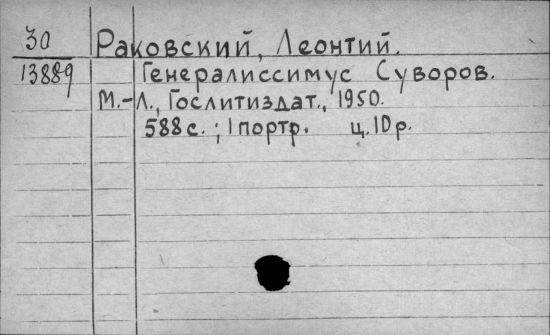 30 Раковский, Леонтий.
13889 Генералиссимус Суворов.
М.-Л., Гослитиздат., 1950.
588 с. ; 1 портр. ц. 10 р.